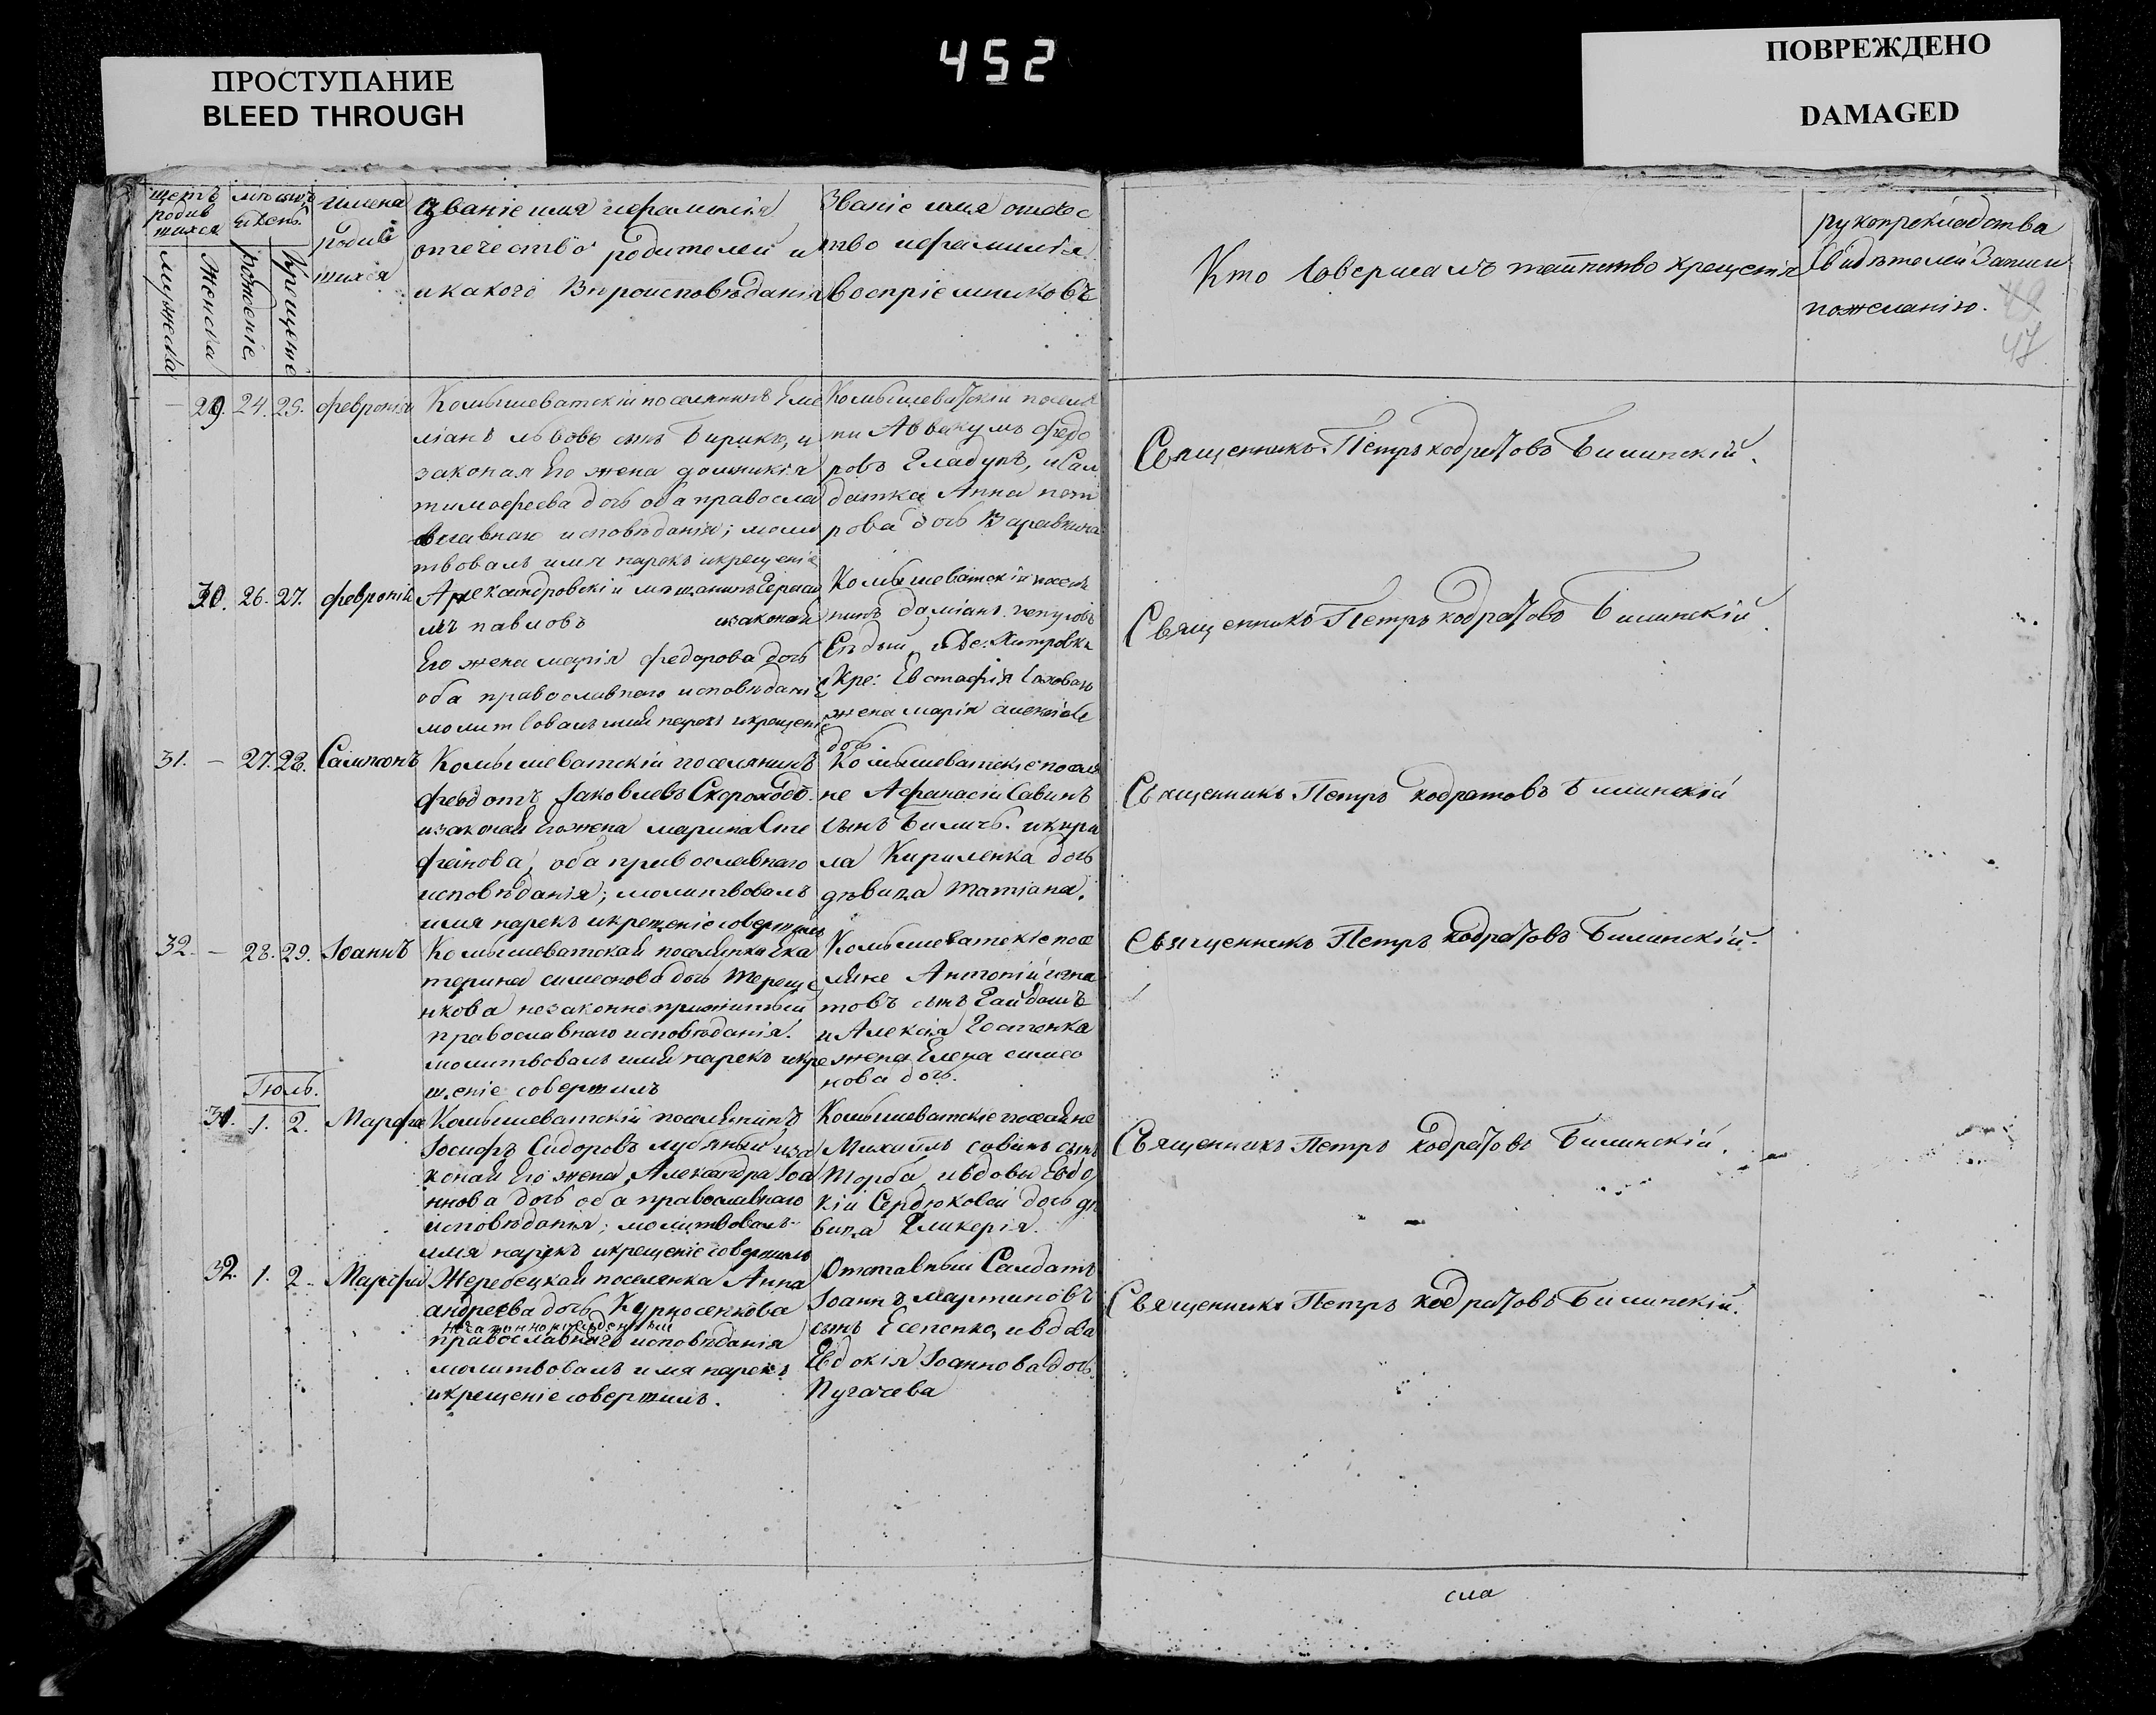 ПРОСТУПАНИЕ
BLEED THROUGH
452
ПОВРЕЖДЕНО
DAMAGED
щетъ родив шихся
мужеска
женска
мѣсяцъ и день
рожденіе
крещеніе
имена родив шихся
званіе имя ифамилія
отечество родителей и
икакого вѣроисповѣданія
Званіе имя отечес
тво ифамилія
воспріемниковъ
Кто Совершалъ таинство крещенія
рукоприкладства
Свидѣтелей Записи
пожеланію.
49
47
29. 24. 25. февронія
Комышеватскій поселянинъ Еме
ліанъ львовъ сынъ Бирюкъ, и
законая Его жена домникія
тимофеева дочь оба правосла
вславнаго исповѣданія; моли
твовалъ имя нарекъ икрещеніе
Комышеватскій поселя
ни Аввакумъ федо
ровъ Гладунъ, иСал
датка Анна пет
рова дочь
Священникъ Петръ кодратовъ Билинскій.
30. 26. 27. февронія
Александровскій мѣщанинъ Гераси
мъ павловъ изаконая
Его жена марія федорова дочь
оба православнаго исповѣданія
молитвовалъ имя нарекъ икрещеніе
Комышеватскій поселя
нинъ даміанъ
Кре: Евстафія
жена марія алексіева
дочь.
Священникъ Петръ кодратовъ Билинскій
31. — 27. 28. Сампсонъ
Комышеватскій поселянинъ
феодотъ Іаковлевъ Скороходъ.
изаконая Егожена марина Сте
фанова, оба православнаго
исповѣданія; молитвовалъ
имя нарекъ икрещеніе совершилъ
Комышеватскіе поселя
не Афанасій Савинъ
сынъ Биличъ. икири
ла Кириленка дочь
дѣвица татіана.
Священникъ Петръ кодратовъ Билинскій
32. — 28. 29. Іоаннъ
Комышеватская поселянка Ека
терина симеонова дочь Тереще
нкова незаконно прижитый
православнаго исповѣданія.
молитвовалъ имя нарекъ икре
щеніе совершилъ
Комышеватскіе посе
ляне Антоній игна
товъ сынъ Гайдашъ
и Алексія Гостенка
жена Елена симео
нова дочь.
Священникъ Петръ кодратовъ Билинскій.
Іюль.
31. 1. 2. Марфа
Комышеватскій поселянинъ
Іосифъ Сидоровъ луб'яный иза
коная Его жена Александра Іоа
ннова дочь оба православнаго
исповѣданія; молитвовалъ
имя нарекъ икрещеніе совершилъ
Комышеватскіе поселяне
Михаилъ савинъ сынъ
Торба ивдовы Евдо
кіи Сердюковой дочь дѣ
вица Гликерія.
Священникъ Петръ кодратовъ Билинскій.
32. 1. 2. Марфа
Жеребецкая поселянка Анна
андреева дочь Курносенкова
незаконнорожденный
православнаго исповѣданія
молитвовалъ имя нарекъ
икрещеніе совершилъ.
Отставный Салдатъ
Іоаннъ мартиновъ
сынъ Есепенко, ивдова
Евдокія Іоаннова дочь.
Пугачева
Священникъ Петръ кодратовъ Билинскій.
сла